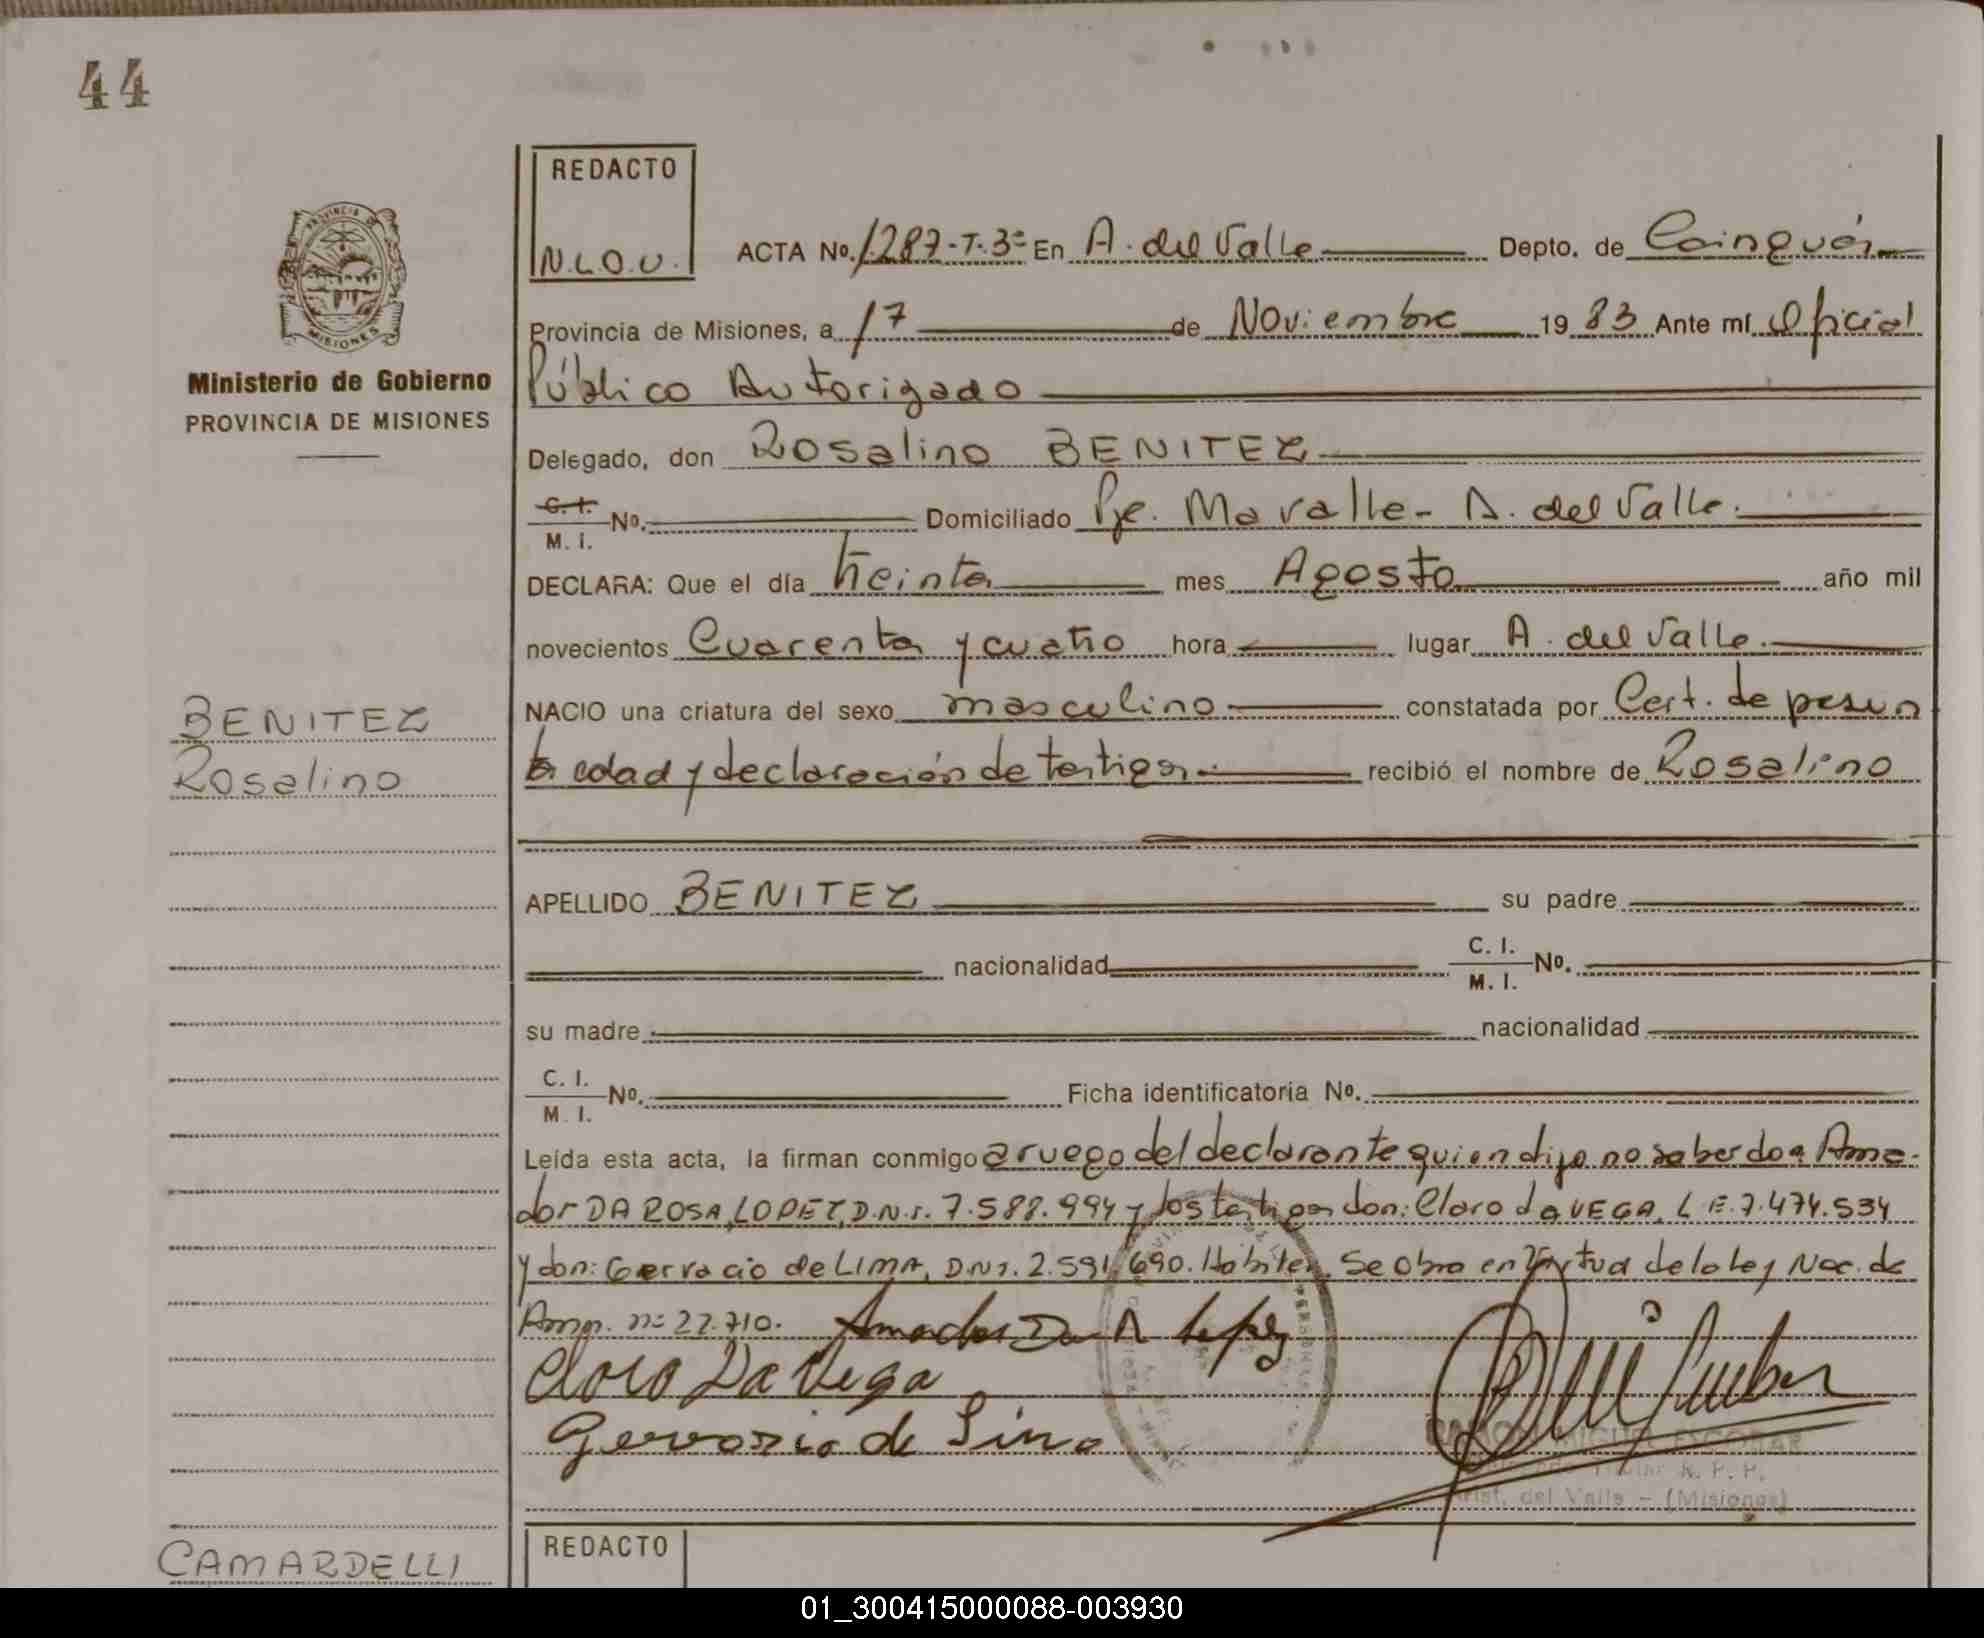 44
REDACTO
N.L.O.U.
ACTA Nº. 1.287-T.3º En A. del Valle Depto. de Cainguás
PROVINCIA DE MISIONES
Provincia de Misiones, a 17 de Noviembre 1983 Ante mí Oficial
Ministerio de Gobierno
PROVINCIA DE MISIONES
Público Autorizado
Delegado, don Rosalino BENITEZ
C. I. M. I. Nº. Domiciliado Pje. Mavalle - A. del Valle.
DECLARA: Que el día treinta mes Agosto año mil
novecientos Cuarenta y cuatro hora lugar A. del Valle.
NACIO una criatura del sexo masculino constatada por Cert. de presun
ta edad y declaración de testigos. recibió el nombre de Rosalino
BENITEZ
Rosalino
APELLIDO BENITEZ su padre
nacionalidad C. I. M. I. Nº.
su madre nacionalidad
C. I. M. I. Nº. Ficha identificatoria Nº.
Leída esta acta, la firman conmigo a ruego del declarante quien dijo no saber don Ama-
dor DA ROSA LOPEZ, D.N.I. 7.588.994 y los testigos don: Claro da VEGA, L.E. 7.474.534
y don: Gervacio de LIMA, D.N.I. 2.591.690. Hábiles. Se obra en Virtud de la Ley Nac. de
Amn. nº 22.710. Amador Da R Lopez
Claro Da Vega
Gervasio de Lima
RAMON MIGUEL ESCOBAR
Titular R. P. P.
Arist. del Valle - (Misiones)
REDACTO
CAMARDELLI
01_300415000088-003930